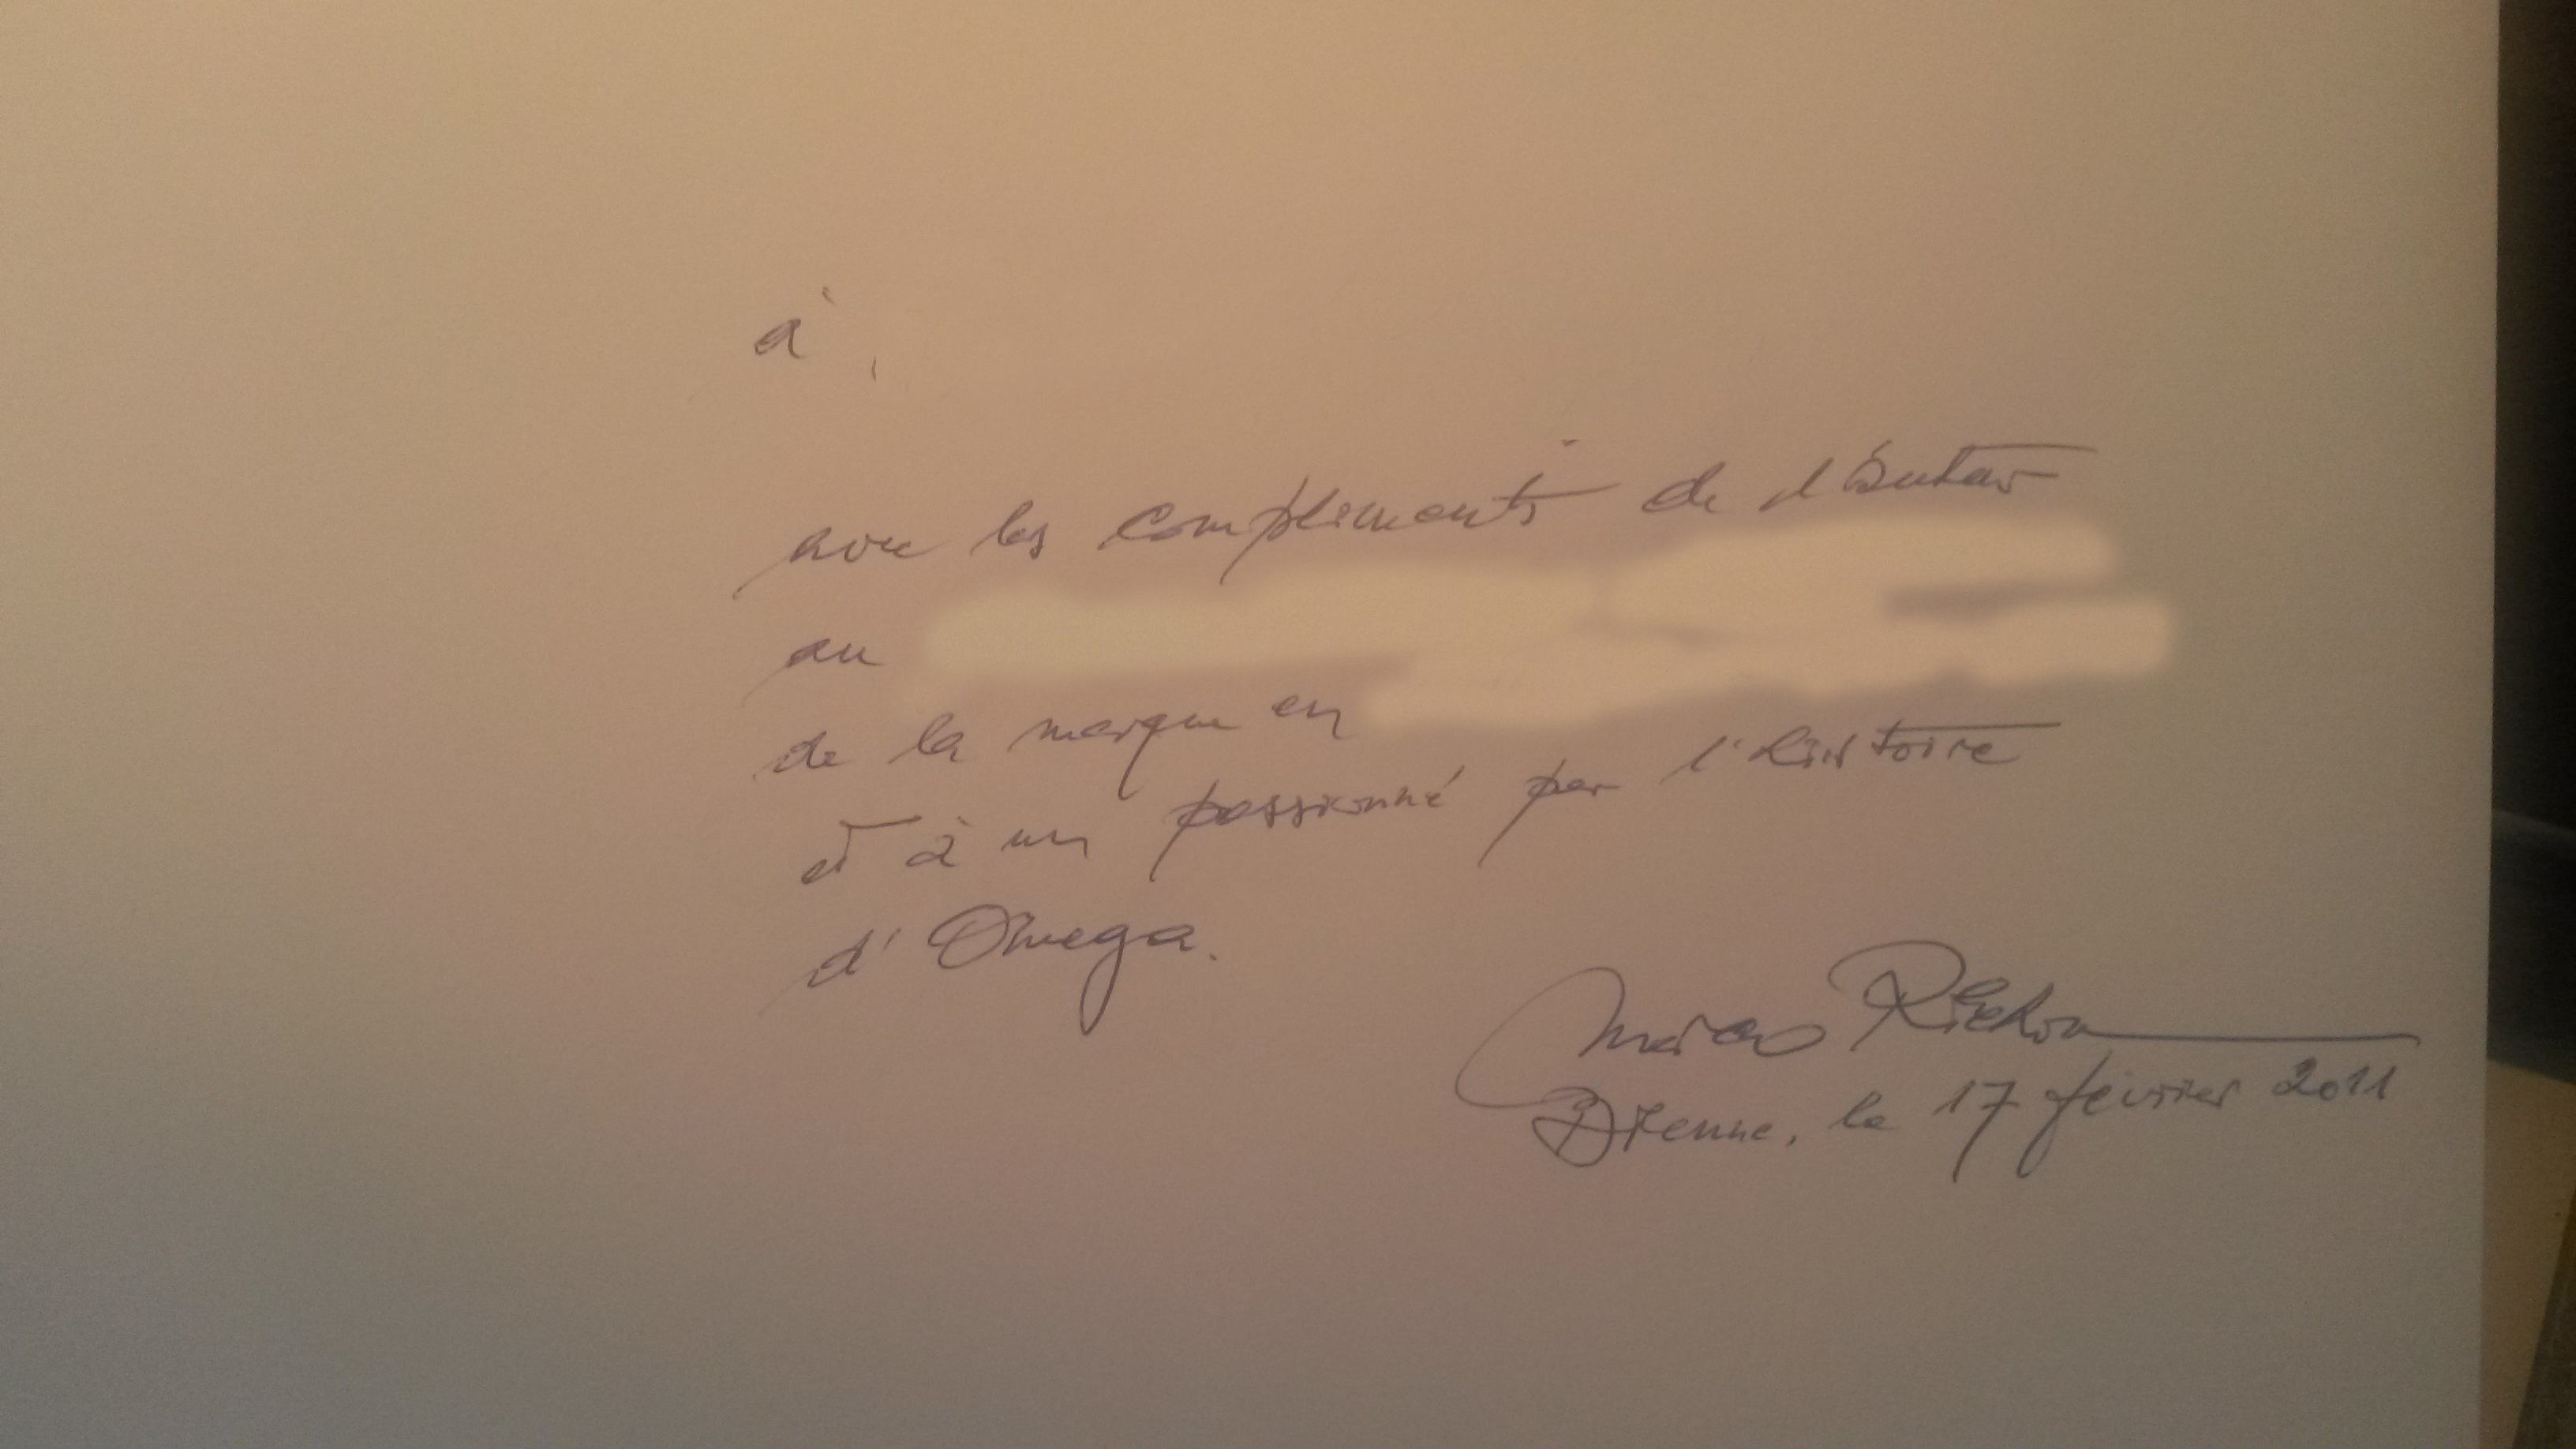 à
avec les compliments de l'auteur
au
de la marque en
et à un passionné par l'histoire
d'Omega.
Marco Richon
Bienne, le 17 février 2011